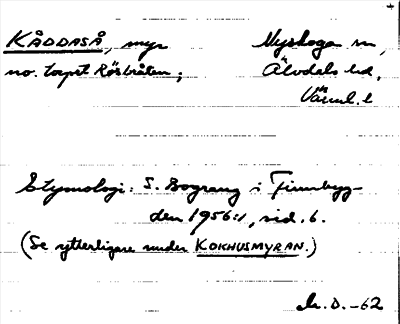 KÅDDASÅ, myr
no. torpet Rösbråten;
Nyskoga sn,
Älvdals hd,
Värml. l
Etymologi: S. Bograng i Finnbyg-
den 1956:1, sid. 6.
(Se ytterligare under KOKHUSMYRAN.)
D. -62